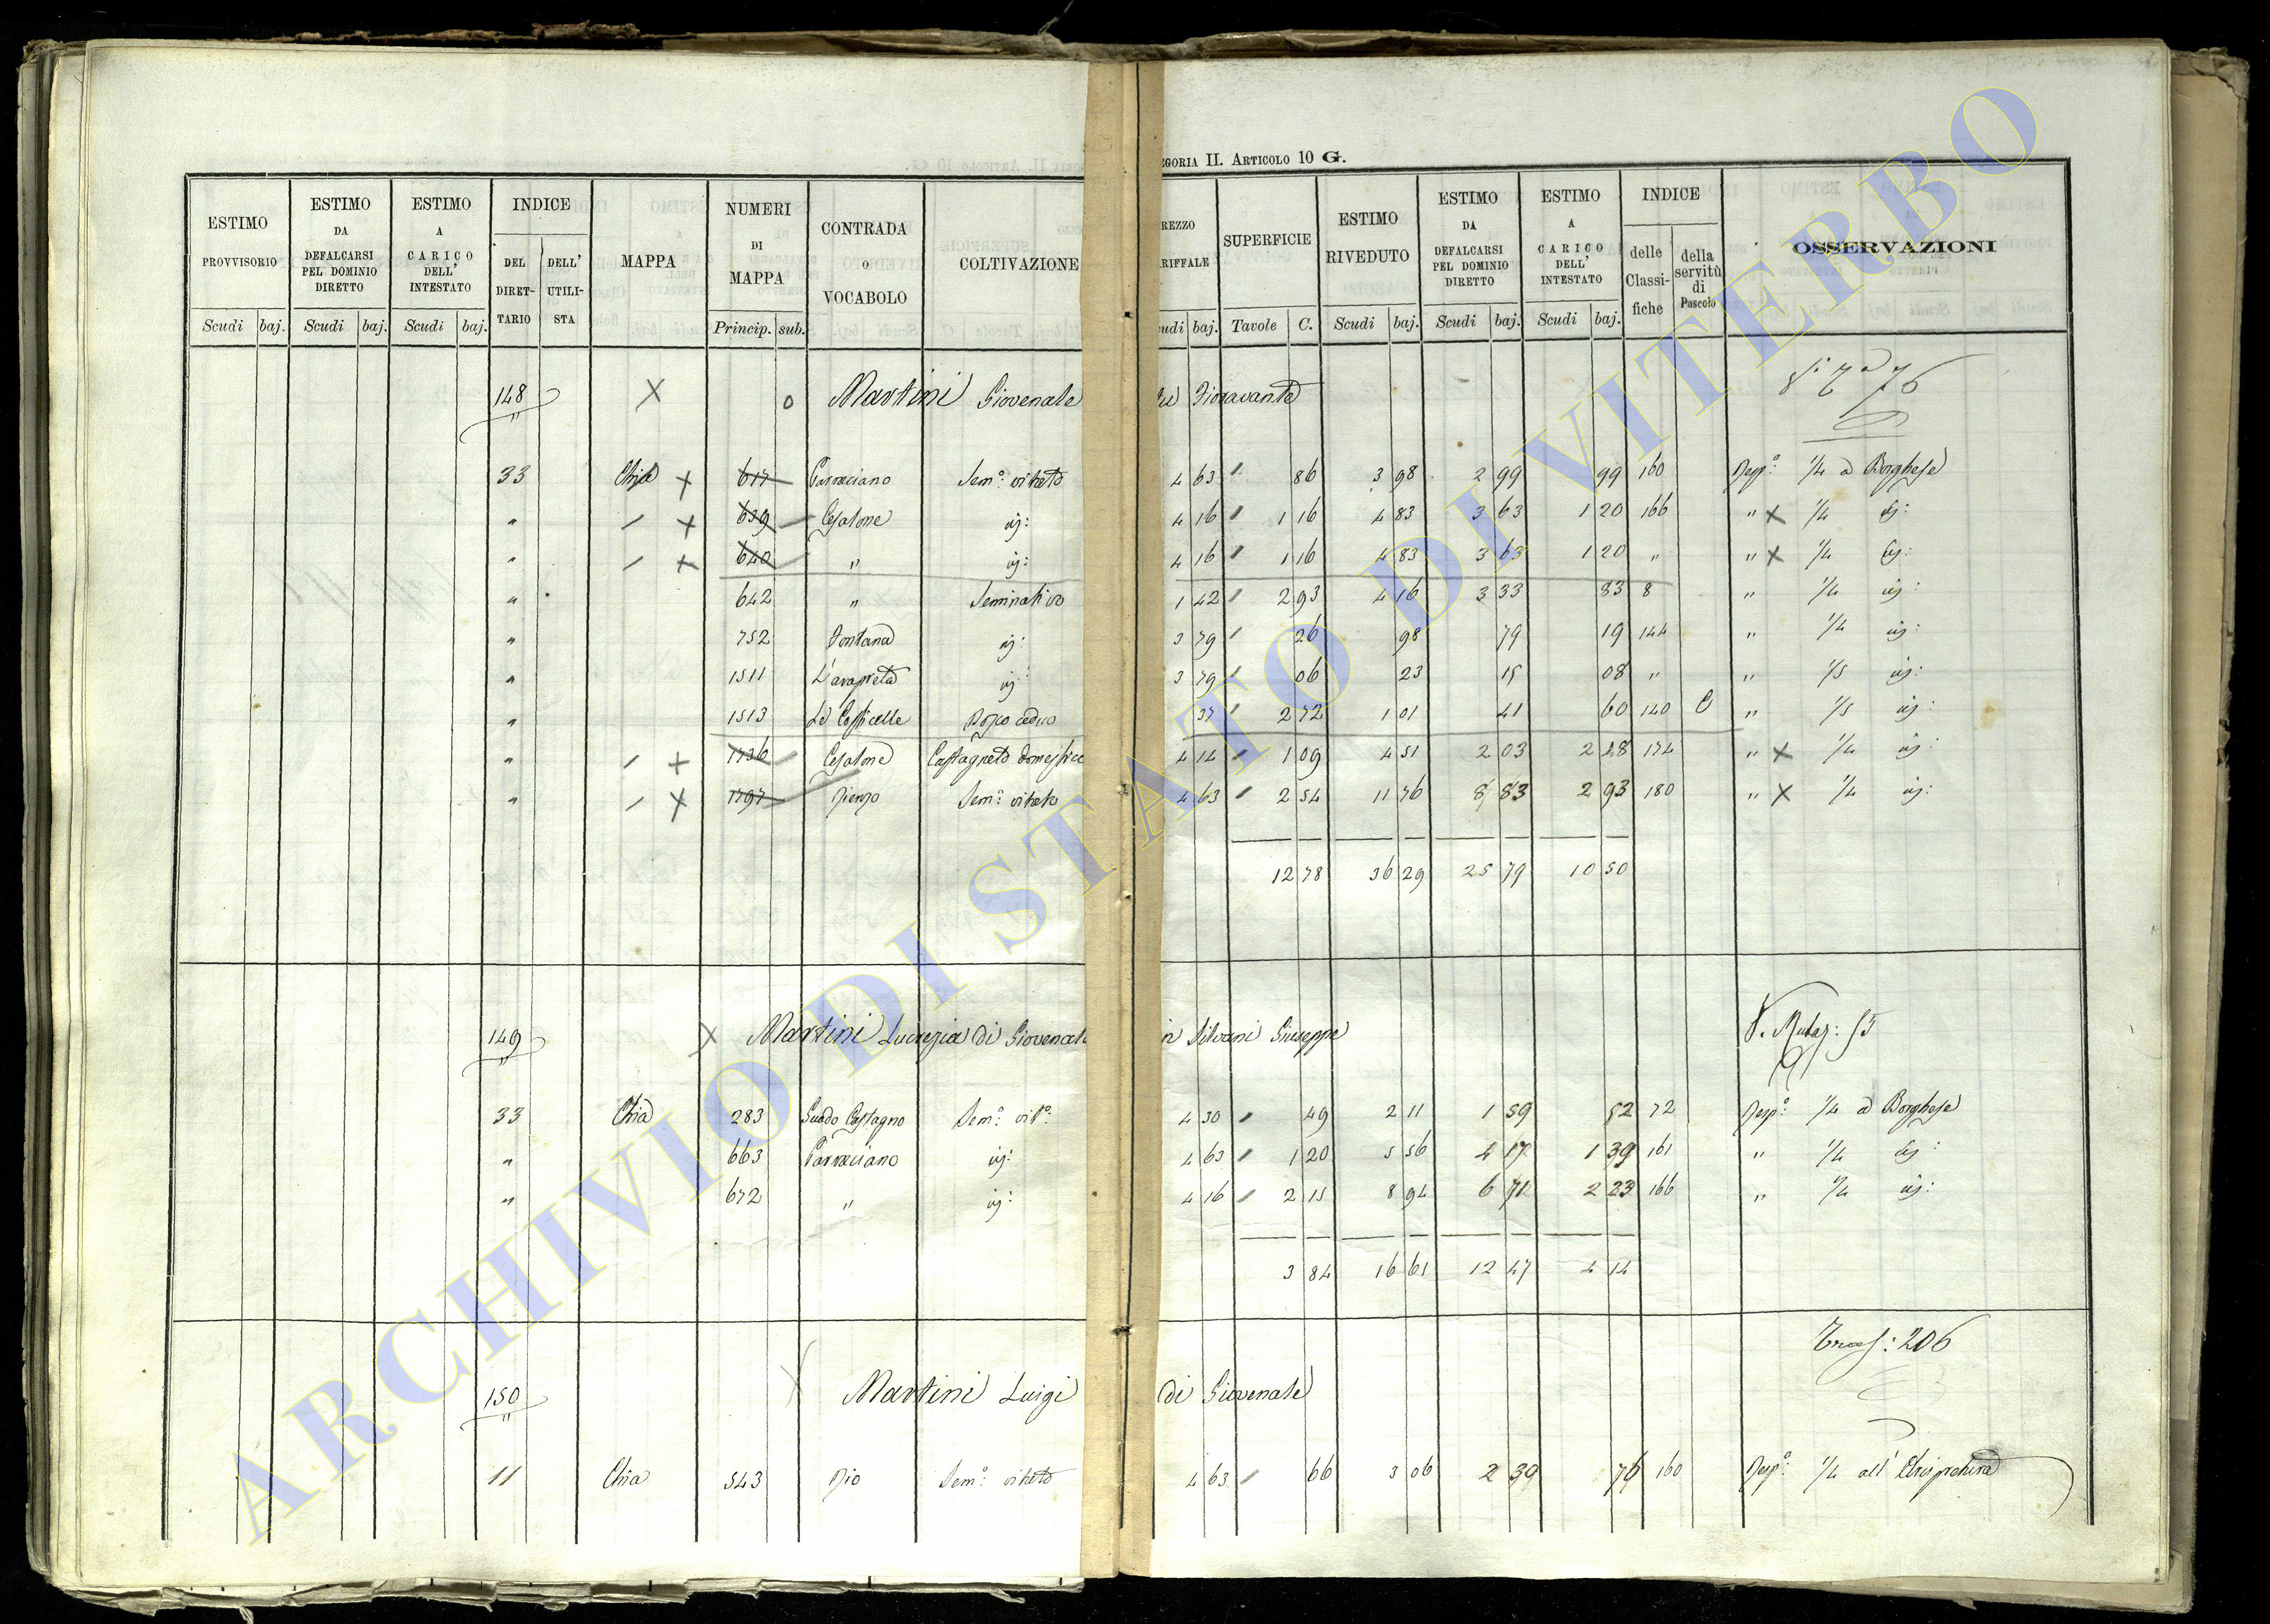 EGORIA II. ARTICOLO 10 G.
ESTIMO PROVVISORIO Scudi baj. | ESTIMO DA DEFALCARSI PEL DOMINIO DIRETTO Scudi baj. | ESTIMO A CARICO DELL' INTESTATO Scudi baj. | INDICE DEL DIRET-TARIO | DELL' UTILI-STA | MAPPA | NUMERI DI MAPPA Princip. sub. | CONTRADA O VOCABOLO | COLTIVAZIONE | REZZO RIFFALE udi baj. | SUPERFICIE Tavole C. | ESTIMO RIVEDUTO Scudi baj. | ESTIMO DA DEFALCARSI PEL DOMINIO DIRETTO Scudi baj. | ESTIMO A CARICO DELL' INTESTATO Scudi baj. | INDICE delle Classi-fiche | della servitù di Pascolo | OSSERVAZIONI
148 X o Martini Giovenale fu Fioravante
33 Chia X 617 Parneciano Sem.º vitato 4 63 " 86 3 98 2 99 99 160 Risp.º 1/4 a Borghese
" / X 639 Cesalone id: 4 16 1 16 4 83 3 63 1 20 166 " X 1/4 id:
" / X 640 " id: 4 16 1 16 4 83 3 63 1 20 " " X 1/4 id:
" 642 " Seminativo 1 42 2 93 4 16 3 33 83 8 " 1/4 id:
" 752 Fontana id: 3 79 26 98 79 19 144 " 1/4 id:
" 1511 id: 3 79 06 23 15 08 " " 1/5 id:
" 1513 Le Casticelle Bosco ceduo 37 2 72 1 01 41 60 140 " 1/5 id:
" / X 1736 Cesalone Castagneto domestico 4 14 1 09 4 51 2 03 2 28 174 " X 1/4 id:
" / X 1797 Sem.º vitato 4 63 2 54 11 76 8 83 2 93 180 " X 1/4 id:
12 78 36 29 25 79 10 50
149 X Martini Lucrezia di Giovenale in Silvani Giuseppe
33 Chia 283 Guado Castagno Sem.º vit.º 4 30 49 2 11 1 59 52 72 Risp.º 1/4 a Borghese
" 663 Parneciano id: 4 63 1 20 5 56 4 17 1 39 161 " 1/4 id:
" 672 " id: 4 16 2 15 8 94 6 71 2 23 166 " 1/4 id:
3 84 16 61 12 47 4 14
Trasf: 206
150 X Martini Luigi di Giovenale
11 Chia 543 Rio Sem.º vitato 4 63 66 3 06 2 39 76 160 Risp.º 1/4 all'
ARCHIVIO DI STATO DI VITERBO